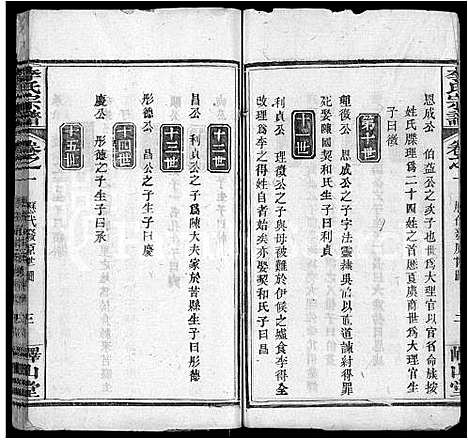 李氏宗譜
恩成公 伯益公之次子也世爲大理官以官
姓氏牒理爲二十四姓之首歷夏虞商世爲大理官生
子曰徵
第十世
理徵公 恩成公之子字法靈隸吳官以直道諫紂得罪
死娶陳國和氏生子曰利貞
十一世
利貞公 理徵公之子與母被難於伊候之墟食李得全
改理爲李之得姓者自始矣亦娶契和氏子曰昌
十二世
昌公 利貞公之子爲陳大夫家於苦縣生子曰彤德
十三世
彤德公 昌公之子生子曰慶
十四世
慶公 彤德之子生子曰承
十五世
李氏宗譜
卷之一
歷代發源世圖
三
嶧山堂